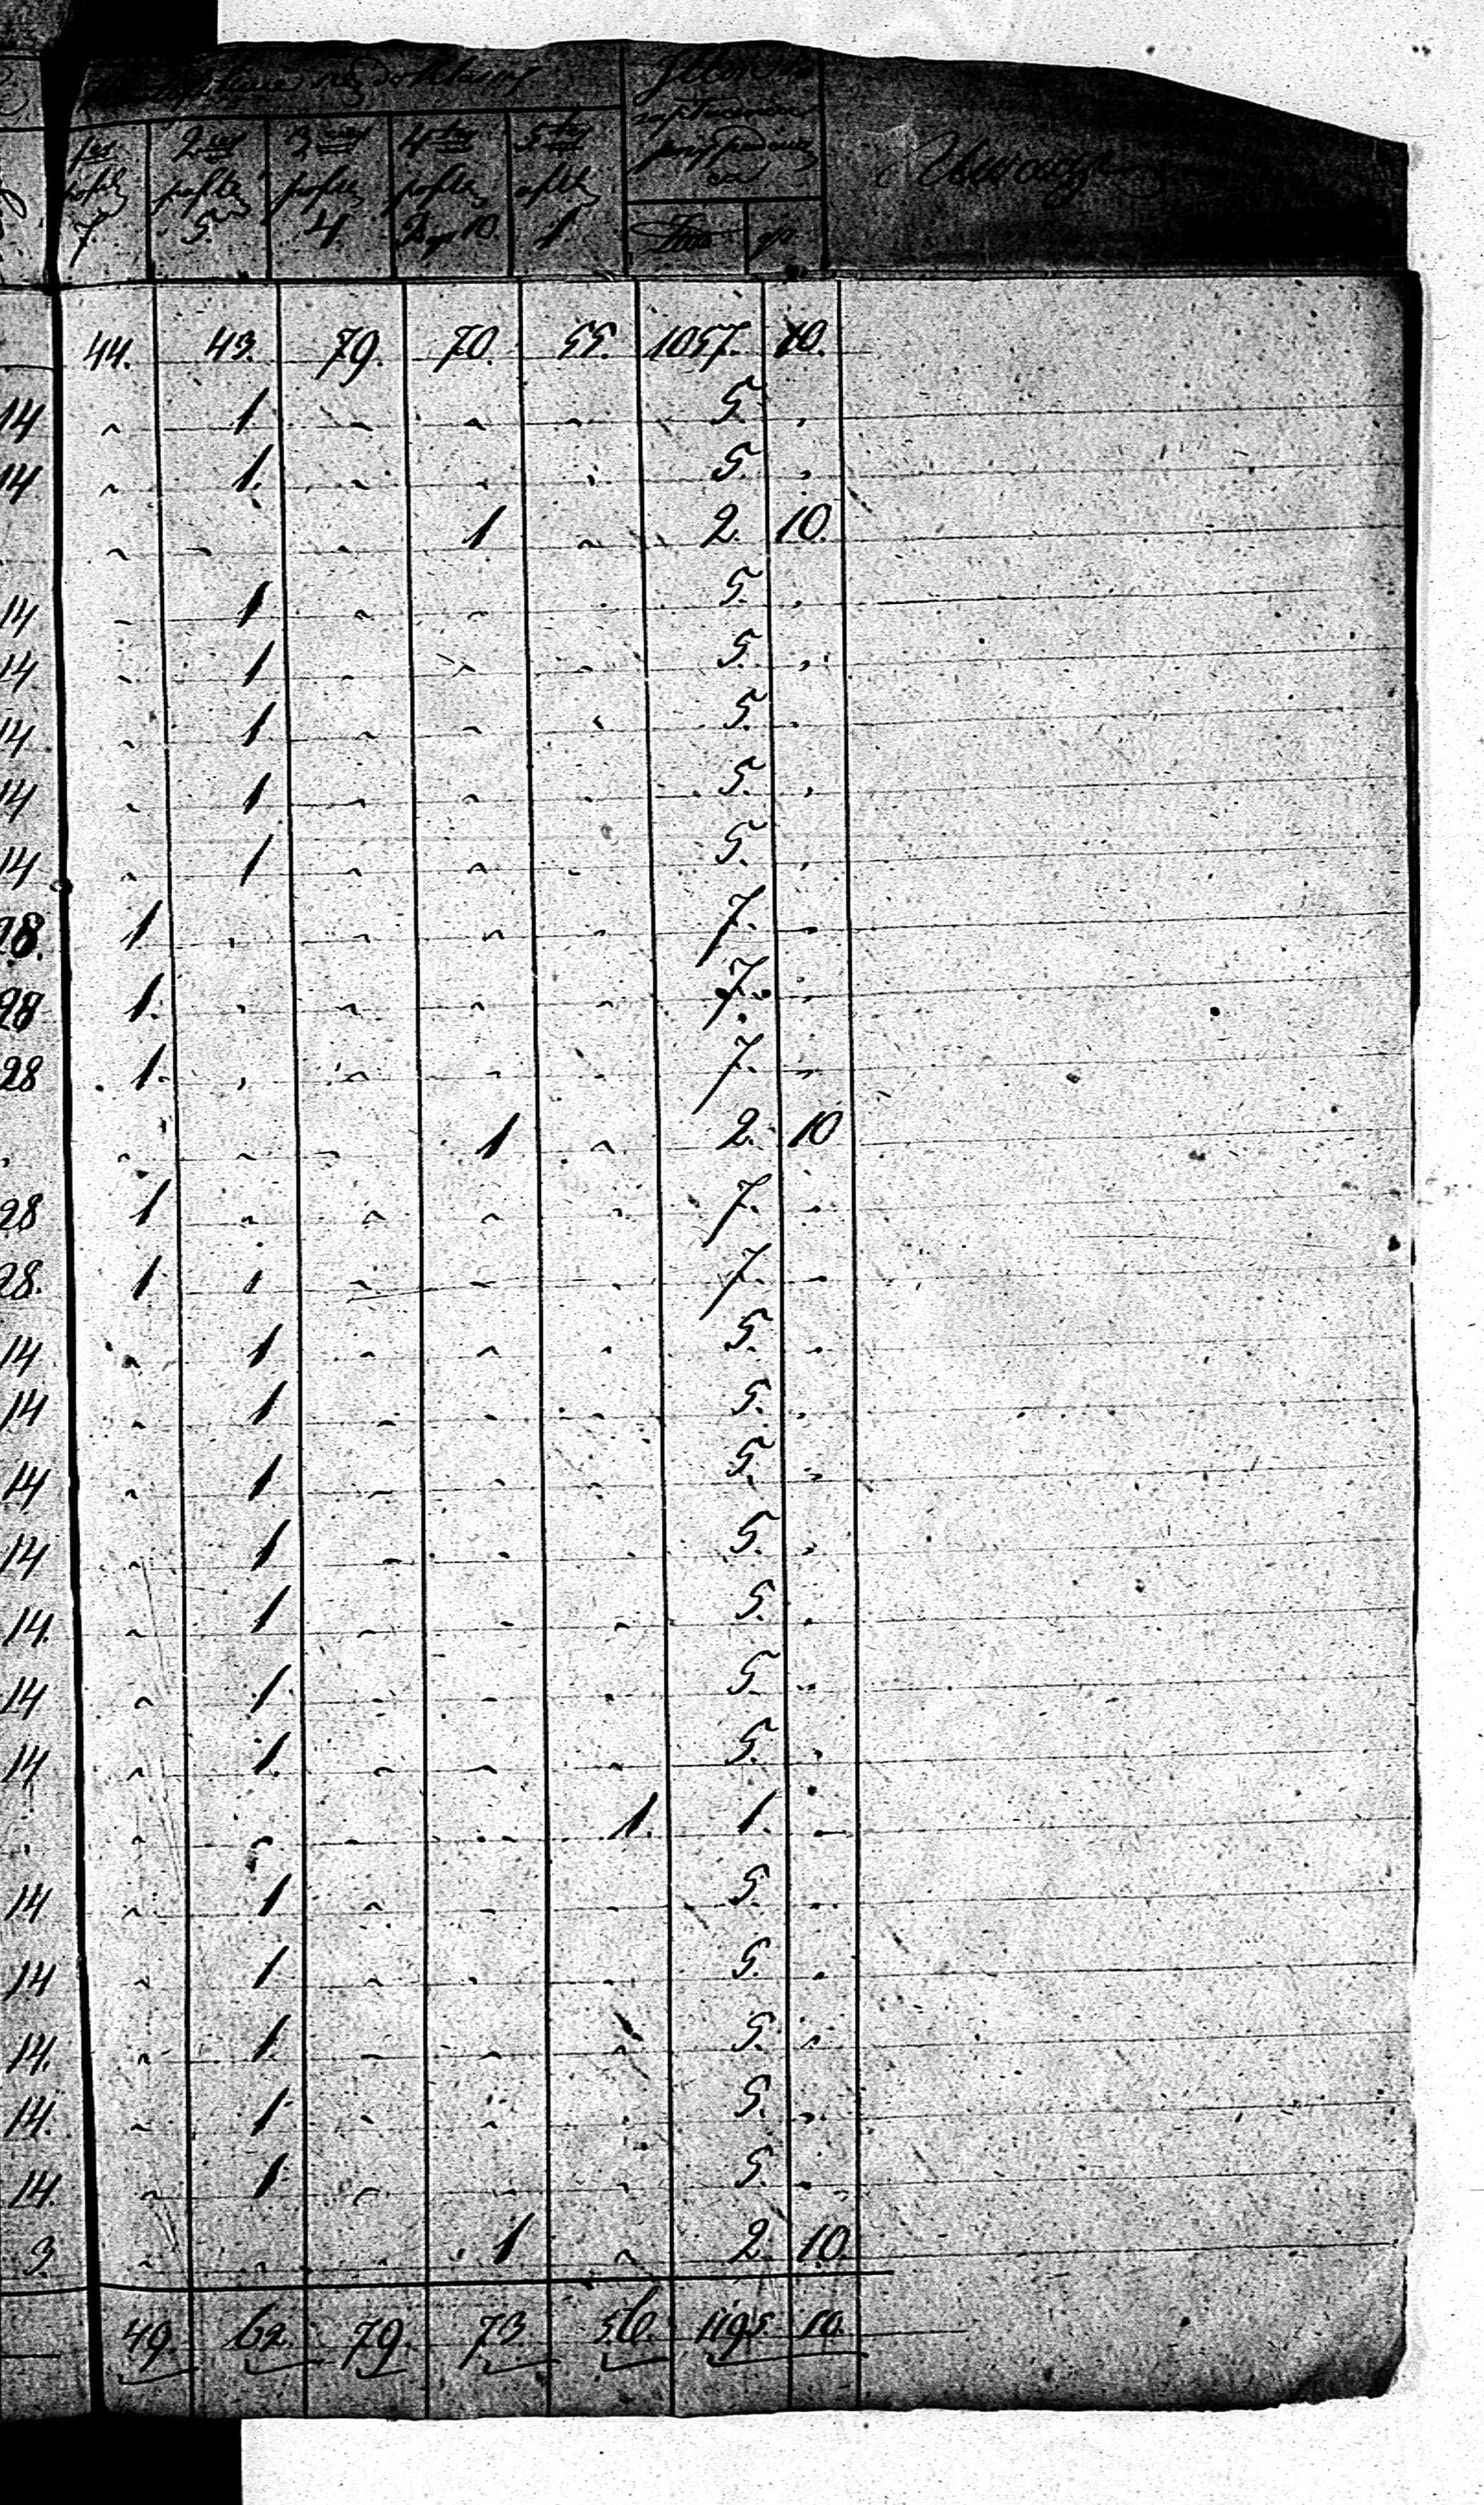 do klassy
1szey 2giey 3ciey 4tey 5tey
7. 5. 4. 2 gr 10. 1.
Uwagi
44. 43. 79. 70. 55. 1057. 10.
14 „ 1 „ „ „ 5. „
14 „ 1. „ „ „ 5. „
„ „ „ 1 „ 2. 10.
14 „ 1 „ „ „ 5. „
14 „ 1 „ „ „ 5. „
14 „ 1 „ „ „ 5. „
14 „ 1 „ „ „ 5. „
14 „ 1 „ „ „ 5. „
28. 1 „ „ „ „ 7. „
28 1. „ „ „ „ 7. „
28 1. „ „ „ „ 7. „
„ „ „ 1 „ 2. 10
28 1 „ „ „ „ 7. „
28. 1 „ „ „ „ 7. „
14 „ 1 „ „ „ 5. „
14 „ 1 „ „ „ 5. „
14 „ 1 „ „ „ 5. „
14 „ 1 „ „ „ 5. „
14. „ 1 „ „ „ 5. „
14 „ 1 „ „ „ 5. „
14 „ 1. „ „ „ 5. „
„ „ „ „ 1. 1. „
14 „ 1 „ „ „ 5. „
14 „ 1 „ „ „ 5. „
14. „ 1 „ „ „ 5. „
14. „ 1 „ „ „ 5. „
14. „ 1 „ „ „ 5. „
3. „ „ „ 1 „ 2. 10.
49. 62. 79. 73. 56. 1195 10.